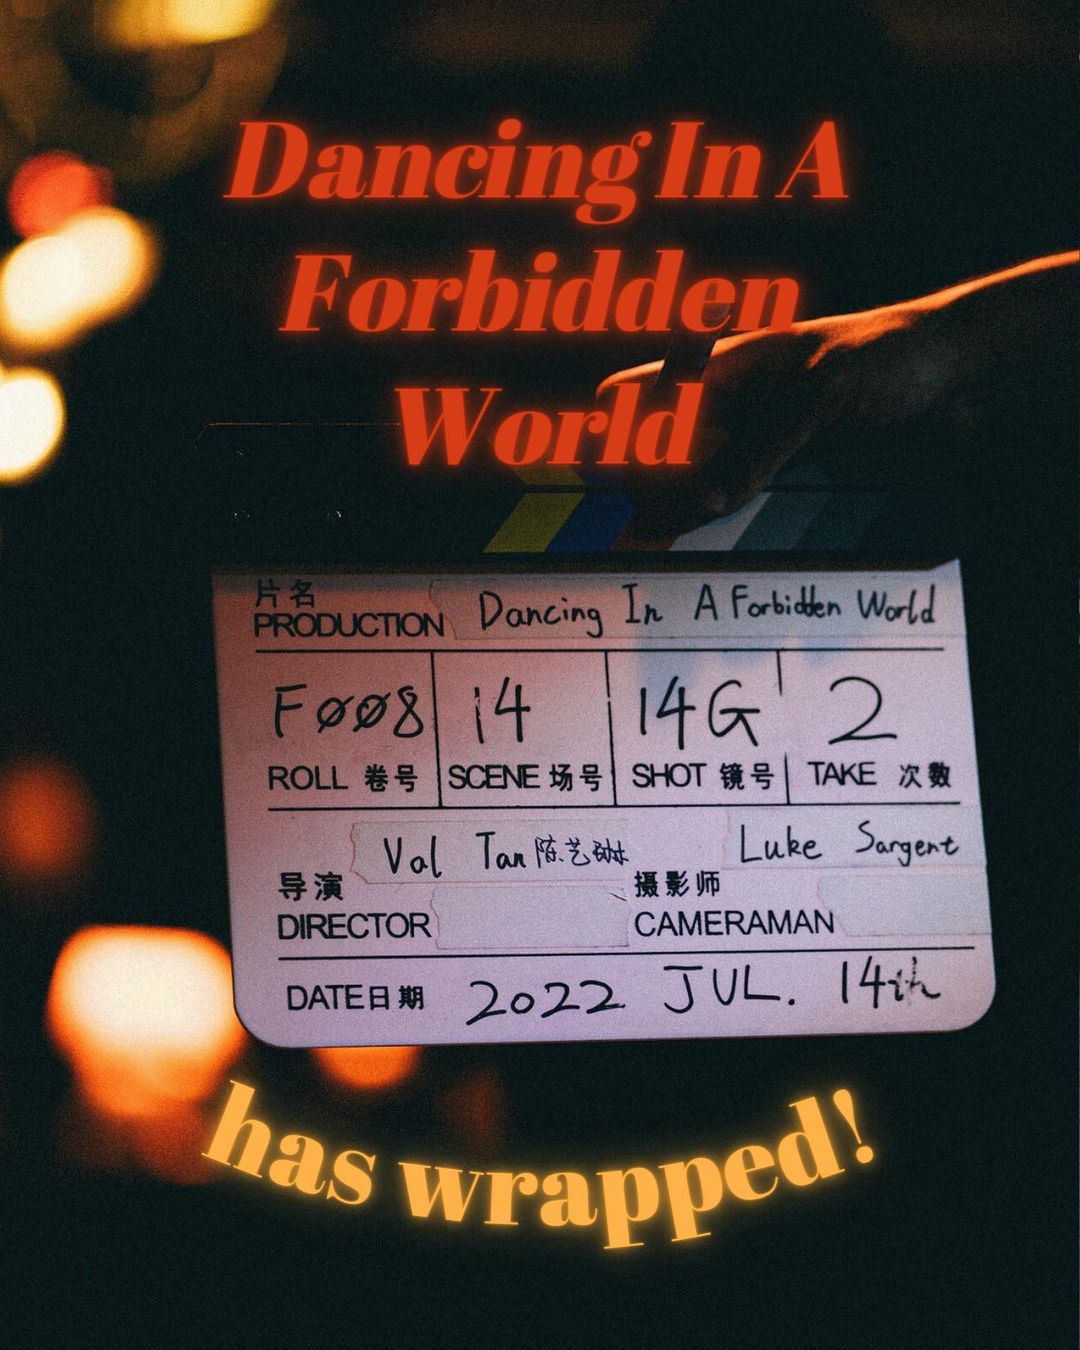 Dancing In A
Forbidden
World
片名
PRODUCTION Dancing In A Forbidden World
FØØ8 14 14G 2
ROLL 卷号 SCENE 场号 SHOT 镜号 TAKE 次数
Val Tan 陈艺琳 Luke Sargent
导演 摄影师
DIRECTOR CAMERAMAN
DATE日期 2022 JUL. 14th
has wrapped!